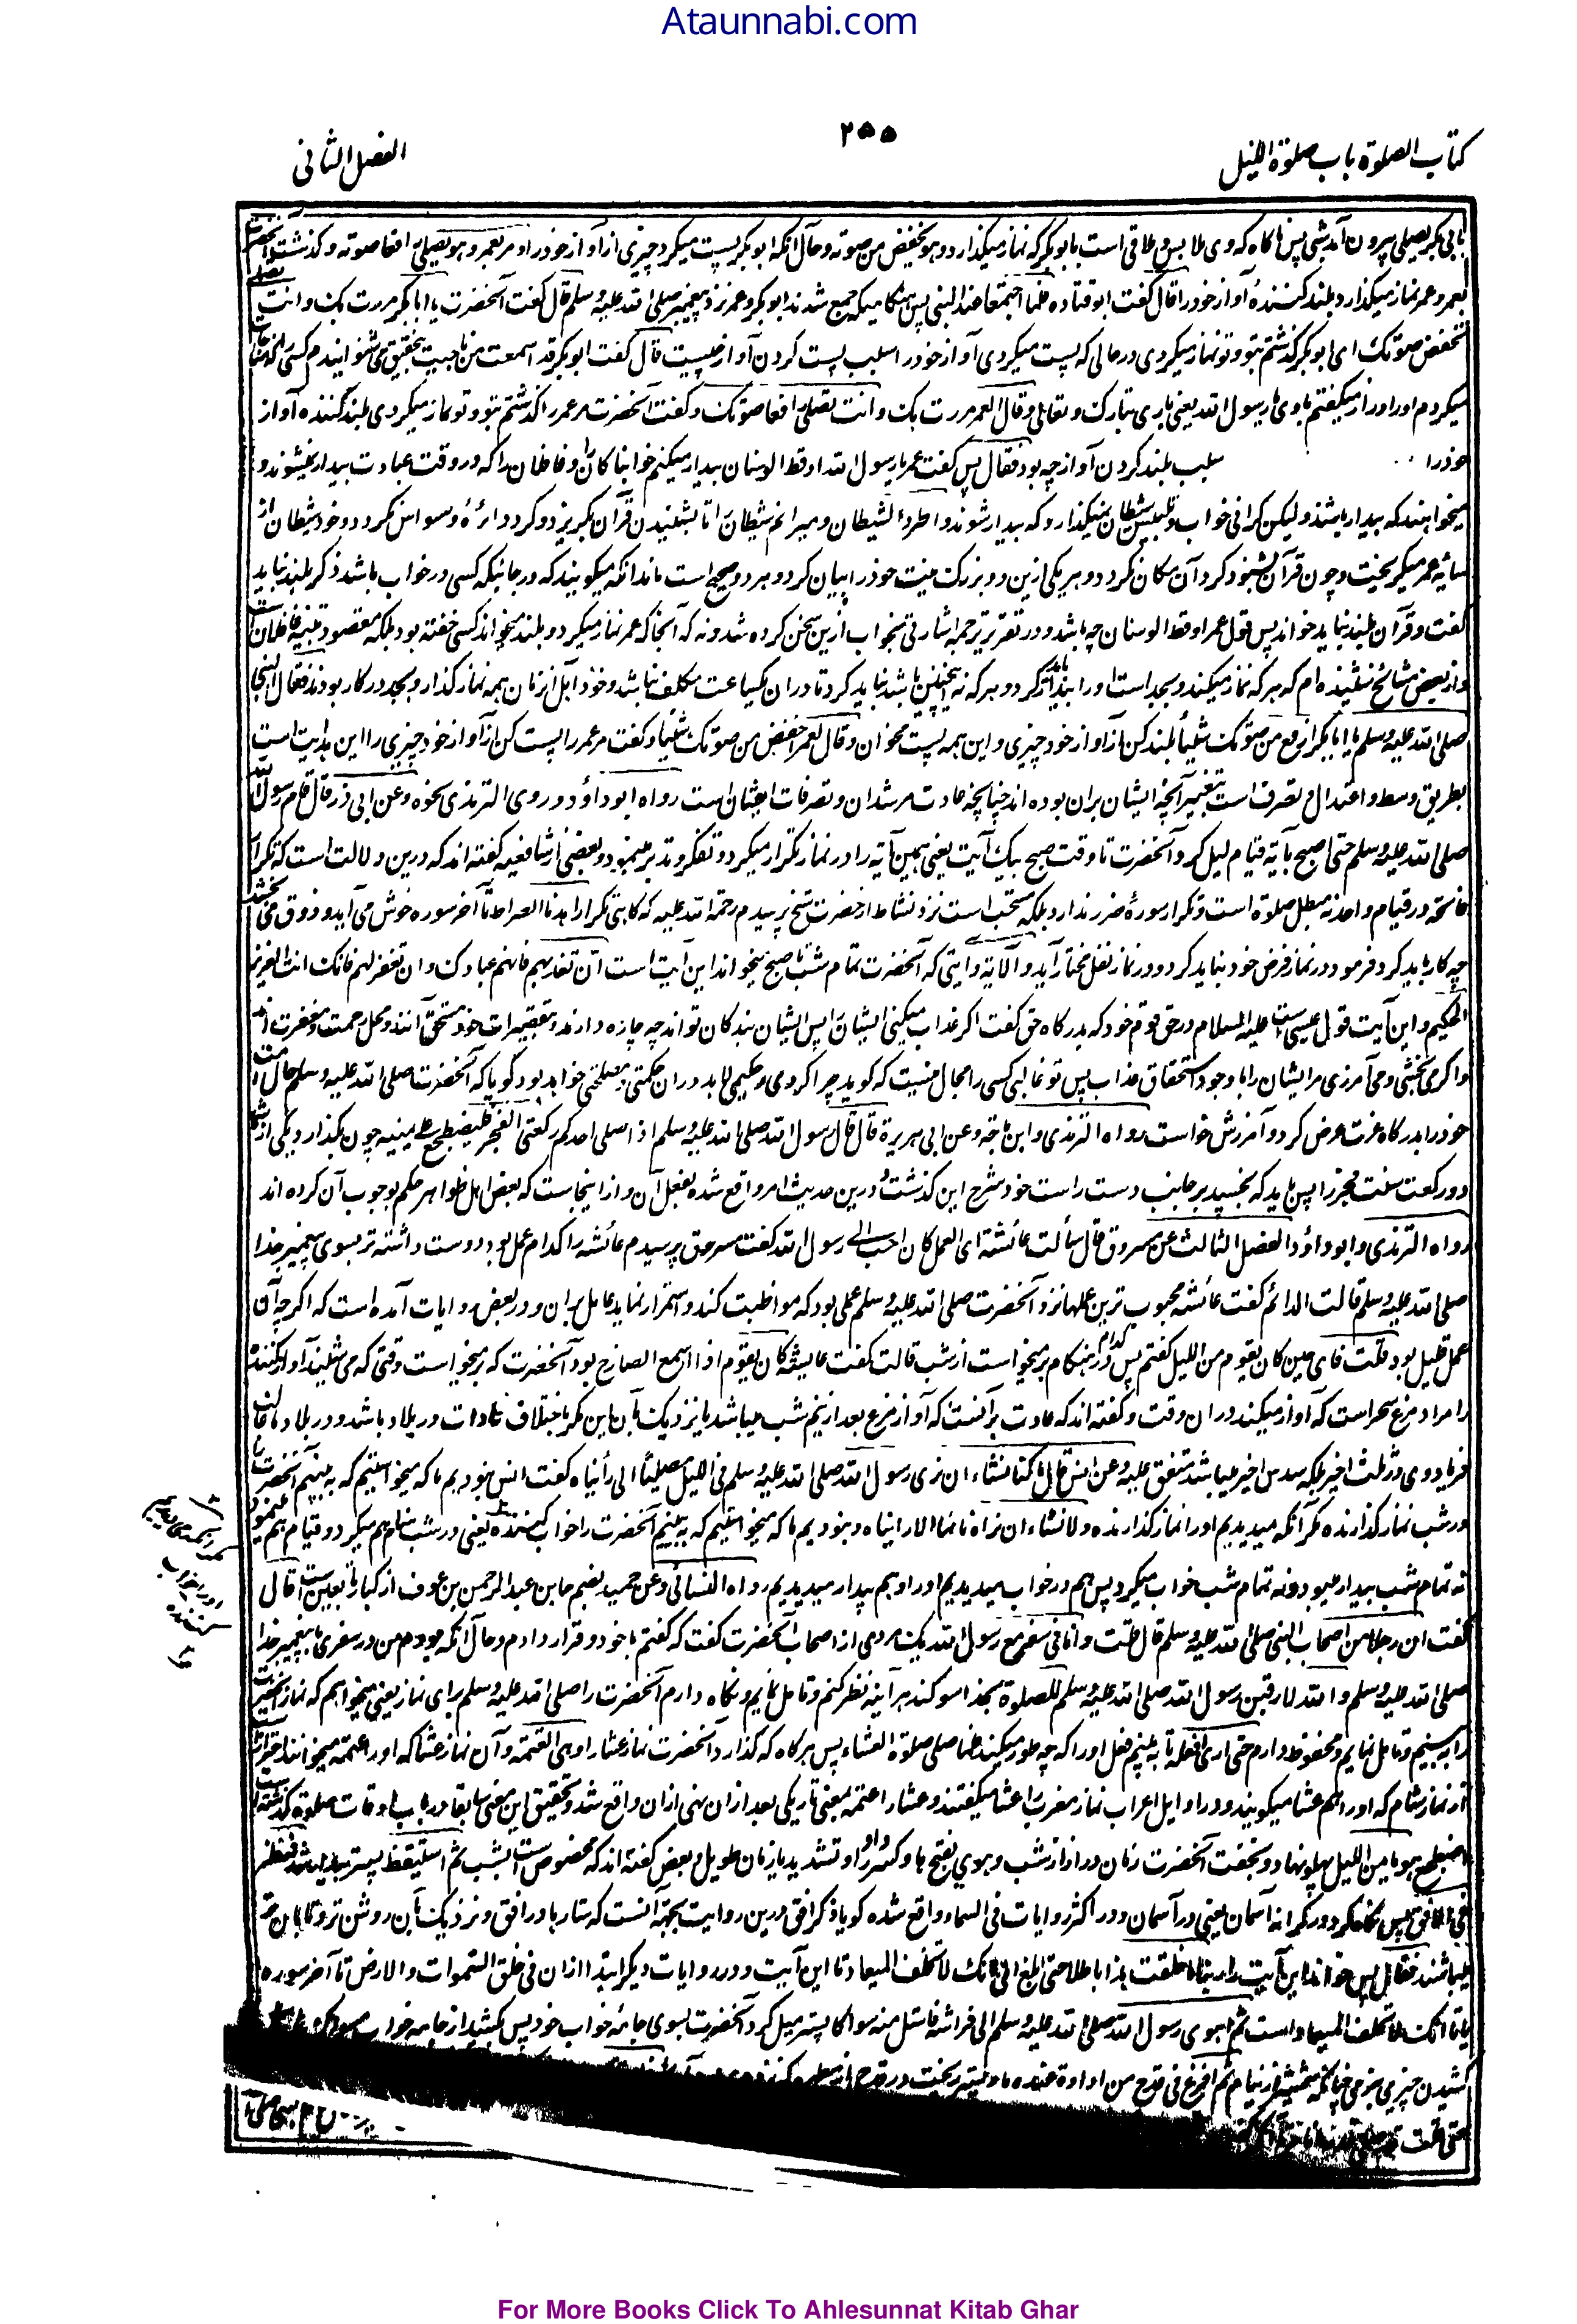 Ataunnabi.com
كتاب الصلوة باب صلوة الليل
۲۵۵
الفصل الثانی
بابی بکر یصلی بیرون آمد شبی پس ناگاه که وی ملابس و ملاقی است بابوبکر که نماز میگذارد و هو یخفض من صوته و حال آنکه ابوبکر پست میکرد چیزی از آواز خود را و مر بعمر و هو یصلی رافعا صوته و گذشت آنحضرت
بعمر و عمر نماز میگذارد بلند کنندهٔ آواز خود را قال گفت ابوقتاده فلما اجتمعا عند النبی پس هنگامیکه جمع شدند ابوبکر و عمر نزد پیغمبر صلی الله علیه وسلم قال گفت آنحضرت یا ابا بکر مررت بک و انت تصلی
تخفض صوتک ای ابوبکر گذشتم بتو و تو نماز میکردی در حالی که پست میکردی آواز خود را سبب پست کردن آواز چیست قال گفت ابوبکر قد اسمعت من ناجیت بتحقیق می شنوانیدم کسی را که مناجات
میکردم او را و راز میگفتم با وی یا رسول الله یعنی باری تبارک و تعالی و قال لعمر مررت بک و انت تصلی رافعا صوتک و گفت آنحضرت مر عمر را گذشتم بتو و تو نماز میکردی بلند کننده آواز
خود را سبب بلند کردن آواز چه بود فقال پس گفت عمر یا رسول الله اوقظ الوسنان بیدار میکنم خوابناکان را و غافلان را که در وقت عبادت بیدار نمیشوند و
میخواهند که بیدار باشند و لیکن گرانی خواب و تلبیس شیطان نمیگذارد که بیدار شوند و اطرد الشیطان و میرانم شیطان را تا بشنیدن قرآن بگریزد و گرد دائرهٔ وسواس نگردد و خود شیطان از
سایهٔ عمر میگریخت و چون قرآن بشنود گرد آن مکان نگردد و هر یکی ازین دو بزرگ نیت خود را بیان کرد و هر دو صحیح است ماند آنکه میگویند که در جائیکه کسی در خواب باشد ذکر بلند نباید
گفت و قرآن بلند نباید خواند پس قول عمر اوقظ الوسنان چه باشد و در تقریر ترجمه اشارتی بجواب ازین سخن کرده شد و نه که آنجا که عمر نماز میکرد و بلند میخواند کسی خفته بود بلکه مقصود تنبیه غافلان است
و از بعضی مشائخ شنیده ام که هر که نماز میکند و بجد است او را بیدار باید کرد و هر که نه اینچنین باشد نباید کرد تا در آن یکساعت مکلف نباشد و خود اهل آنزمان همه نماز گذار و بجد در کار بودند فقال النبی
صلی الله علیه وسلم یا ابا بکر ارفع من صوتک شیئا بلند کن از آواز خود چیزی و این همه پست مخوان و قال لعمر اخفض من صوتک شیئا و گفت مر عمر را پست کن از آواز خود چیزی را این هدایت است
بطریق وسط و اعتدال و تصرف است بتغییر آنچه ایشان بران بوده اند چنانچه عادت مرشدان و تصرفات ایشان است رواه ابو داؤد و روی الترمذی نحوه و عن ابی ذر قال قام رسول الله
صلی الله علیه وسلم حتی اصبح بآیة قیام لیل کرد آنحضرت تا وقت صبح بیک آیت یعنی همین آیه را در نماز تکرار میکرد و تفکر و تدبر مینمود و بعضی از شافعیه گفته اند که درین دلالت است که تکرار
فاتحه در قیام واحد نه مبطل صلوة است و تکرار سورهٔ ضرر ندارد بلکه مستحب است نزد نشاط از حضرت شیخ پرسیدم رحمة الله علیه که گاهی تکرار اهدنا الصراط تا آخر سوره خوش می آید و ذوق می بخشد
چه کار باید کرد فرمود در نماز فرض خود نباید کرد و در نماز نفل مختار آید و الآیة و ایتی که آنحضرت تمام شب تا صبح میخواند این آیت است ان تعذبهم فانهم عبادک و ان تغفر لهم فانک انت العزیز
الحکیم و این آیت قول عیسی است علیه السلام در حق قوم خود که بدرگاه حق گفت اگر عذاب میکنی ایشان را پس ایشان بندگان تواند چه چاره دارند و بتقصیرات خود مستحق آنند و محل رحمت و مغفرت اند
و اگر می بخشی و می آمرزی مر ایشان را با وجود استحقاق عذاب پس تو غالبی کسی را مجال نیست که گوید چرا کردی و حکیمی لابد در آن حکمتی و مصلحتی خواهد بود گویا که آنحضرت صلی الله علیه وسلم حال امت
خود را بدرگاه عزت عرض کرد و آمرزش خواست رواه الترمذی و ابن ماجة و عن ابی هریرة قال قال رسول الله صلی الله علیه وسلم اذا صلی احدکم رکعتی الفجر فلیضطجع علی یمینه چون بگذارد یکی از شما
دو رکعت سنت فجر را پس باید که بخسپد بر جانب دست راست خود شرح این گذشت و درین حدیث امر واقع شده بفعل آن و از اینجاست که بعض اهل ظواهر حکم بوجوب آن کرده اند
رواه الترمذی و ابو داؤد الفصل الثالث عن مسروق قال سألت عائشة ای العمل کان احب الی رسول الله گفت مسروق پرسیدم عائشه را کدام عمل بود دوست داشته تر بسوی پیغمبر خدا
صلی الله علیه وسلم قالت الدائم گفت عائشه محبوب ترین عملها نزد آنحضرت صلی الله علیه وسلم عملی بود که مواظبت کند و استمرار نماید عامل بران و در بعض روایات آمده است که اگرچه آن
عمل قلیل بود قلت فای حین کان یقوم من اللیل گفتم پس در کدام هنگام برمیخواست از شب قالت گفت عائشه کان یقوم اذا سمع الصارخ بود آنحضرت که برمیخواست وقتی که می شنید آواز کننده
را مراد مرغ سحر است که آواز میکند در آن وقت و گفته اند که عادت بر آنست که آواز مرغ بعد از نیم شب میباشد یا نزدیک بآن این مگر باختلاف عادات در بلاد باشد و در بلاد ما غالب
فریاد وی در ثلث اخیر بلکه سدس اخیر میباشد متفق علیه و عن انس قال ما کنا نشاء ان نری رسول الله صلی الله علیه وسلم فی اللیل مصلیا الا رأیناه گفت انس نبودیم ما که میخواستیم که به بینیم آنحضرت را
در شب نماز گذارنده مگر آنکه میدیدیم او را نماز گذارنده و لا نشاء ان نراه نائما الا رأیناه و نبودیم ما که میخواستیم که به بینیم آنحضرت را خواب کننده یعنی در شب منام هم میکرد و قیام هم مینمود
نه تمام شب بیدار میبود و نه تمام شب خواب میکرد پس هم در خواب میدیدیم او را و هم بیدار میدیدیم رواه النسائی و عن حمید بضم حا بن عبد الرحمن بن عوف از کبار تابعین است قال
گفت ان رجلا من اصحاب النبی صلی الله علیه وسلم قال قلت و انا فی سفر مع رسول الله یک مردی از اصحاب آنحضرت گفت که گفتم با خود و قرار دادم و حال آنکه بودم من در سفری با پیغمبر خدا
صلی الله علیه وسلم و الله لارقبن رسول الله صلی الله علیه وسلم للصلوة بخدا سوگند هر آینه نظر کنم و تامل نمایم و نگاه دارم آنحضرت را صلی الله علیه وسلم برای نماز یعنی میخواهم که نماز آنحضرت
را به بینم و تامل نمایم و محفوظ دارم حتی اری فعله تا به بینم فعل او را که چه طور میکند فلما صلی صلوة العشاء پس هرگاه که گذارد آنحضرت نماز عشا را و هی العتمة و آن نماز عشا که او را عتمه میخوانند
از نماز شام که او را هم عشا میگویند و در اوایل اعراب نماز مغرب را عشا میگفتند و عشا را عتمه بمعنی تاریکی بعد از آن نهی از آن واقع شد و تحقیق این معنی سابقا در باب اوقات صلوة گذشته است
اضطجع هویا من اللیل پهلو نهاد و بخفت آنحضرت زمان دراز از شب و هوی بفتح ها و کسر واو و تشدید یا زمان طویل و بعض گفته اند که مخصوص است بشب ثم استیقظ پستر بیدار شد فنظر
فی الافق پس نگاه کرد در کرانه آسمان یعنی در آسمان و در اکثر روایات فی السماء واقع شده گویا ذکر افق درین روایت بجهة آنست که ستارها در افق و نزدیک بآن روشن تر و تابان تر
میباشند فقال پس خواند این آیت را ربنا ما خلقت هذا باطلا حتی بلغ الی انک لا تخلف المیعاد تا این آیت و در روایات دیگر ابتدا از ان فی خلق السموات و الارض تا آخر سوره
یا تا انک لا تخلف المیعاد است ثم اهوی رسول الله صلی الله علیه وسلم الی فراشه فاستل منه سواکا پستر میل کرد آنحضرت بسوی جامهٔ خواب خود پس کشید از جامه خواب مسواک
کشیدن چیزی بنرمی چنانکه شمشیر از نیام ثم افرغ فی قدح من اداوة عنده ماء پستر ریخت در قدح از مطهره
حتی قلت
For More Books Click To Ahlesunnat Kitab Ghar